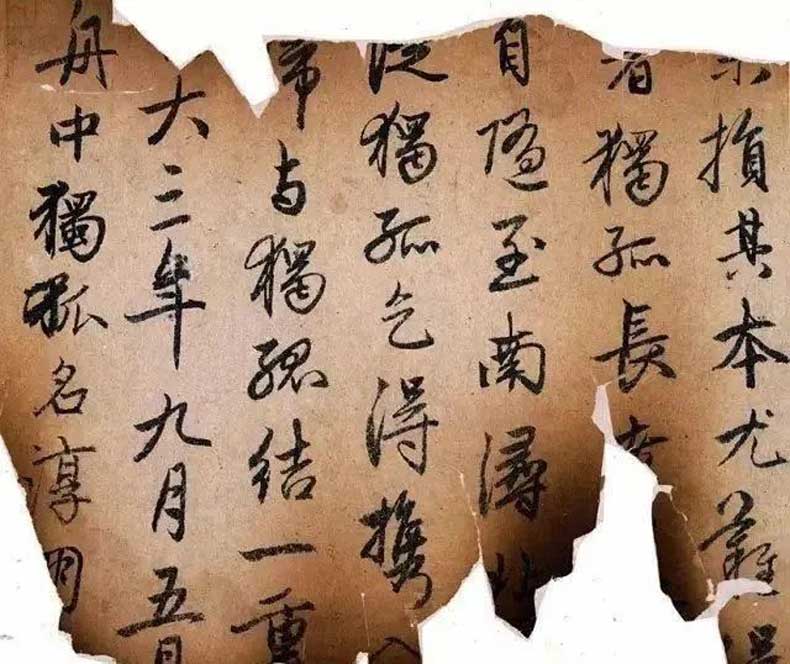 損其本尤難
者獨孤長
自隨至南潯北
從獨孤乞得攜入
与獨孤結一重
大三年九月五日
舟中獨孤名淳朋